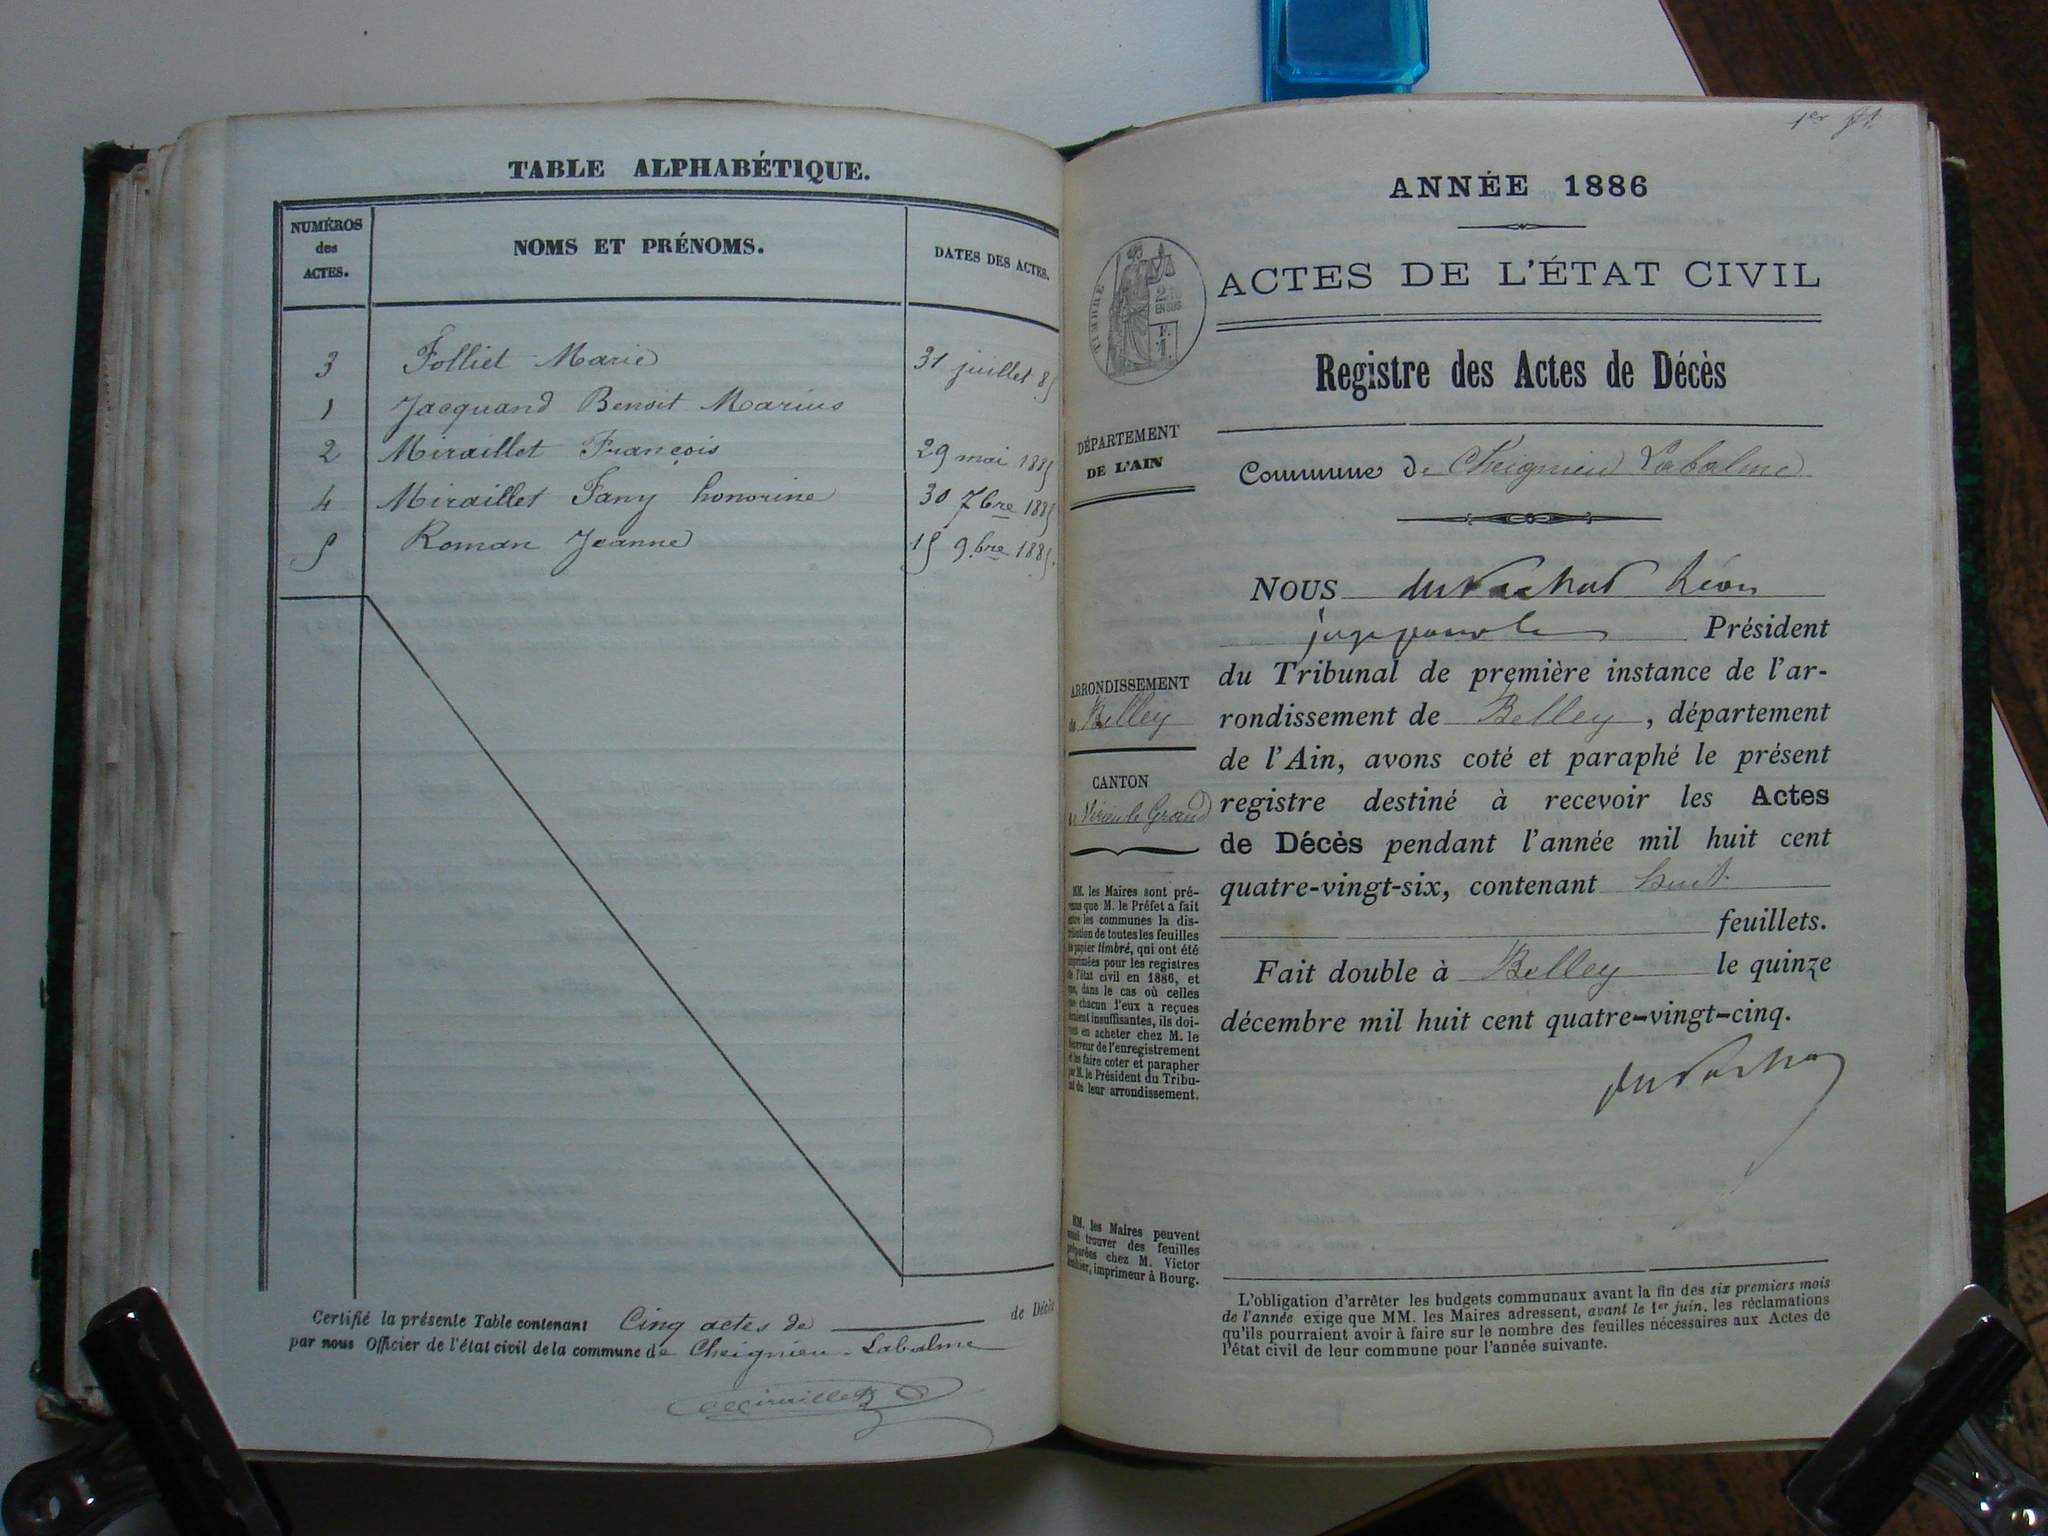 TABLE ALPHABÉTIQUE.
NUMÉROS
des
ACTES.
NOMS ET PRÉNOMS.
DATES DES ACTES.
3 Folliet Marie 31 juillet 85
1 Jacquand Benoit Marius
2 Miraillet François 29 mai 1885
4 Miraillet Fany honorine 30 7bre 1885
5 Roman Jeanne 15 9bre 1885.
Certifié la présente Table contenant Cinq actes de de Décès
par nous Officier de l'état civil de la commune de Cheignieu-Labalme
Miraillet
1er
ANNÉE 1886
TIMBRE
EN SUS
ACTES DE L'ÉTAT CIVIL
Registre des Actes de Décès
DÉPARTEMENT
DE L'AIN
Commune De Cheignieu Labalme
NOUS Léon
Président
du Tribunal de première instance de l'ar-
ARRONDISSEMENT
de Belley
rondissement de Belley, département
de l'Ain, avons coté et paraphé le présent
CANTON
Virieu le Grand
registre destiné à recevoir les Actes
de Décès pendant l'année mil huit cent
quatre-vingt-six, contenant huit
feuillets.
Fait double à Belley le quinze
décembre mil huit cent quatre-vingt-cinq.
MM. les Maires sont pré-
venus que M. le Préfet a fait
entre les communes la dis-
tribution de toutes les feuilles
de papier timbré, qui ont été
imprimées pour les registres
de l'état civil en 1886, et
que, dans le cas où celles
que chacun d'eux a reçues
étaient insuffisantes, ils doi-
vent en acheter chez M. le
Receveur de l'enregistrement
et les faire coter et parapher
par M. le Président du Tribu-
nal de leur arrondissement.
MM. les Maires peuvent
aussi trouver des feuilles
préparées chez M. Victor
Authier, imprimeur à Bourg.
L'obligation d'arrêter les budgets communaux avant la fin des six premiers mois
de l'année exige que MM. les Maires adressent, avant le 1er juin, les réclamations
qu'ils pourraient avoir à faire sur le nombre des feuilles nécessaires aux Actes de
l'état civil de leur commune pour l'année suivante.